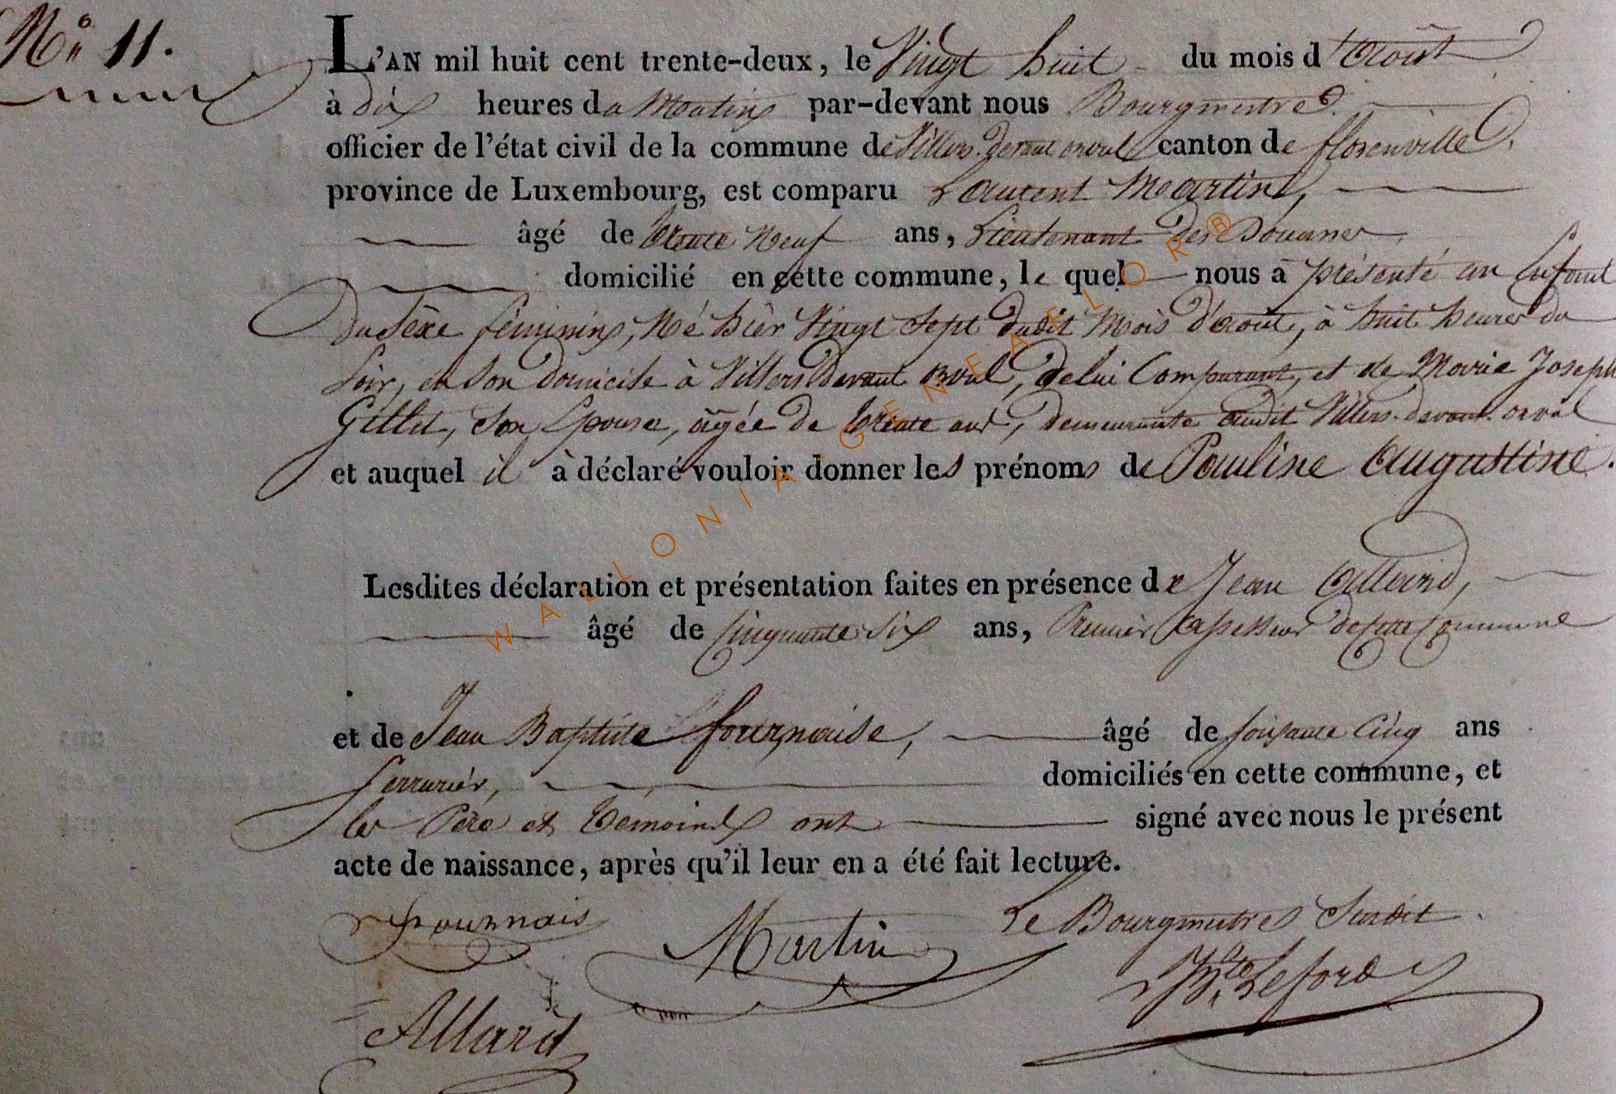 No 11.
L'AN mil huit cent trente-deux, le Vingt huit du mois d'Août
à dix heures du Matin par-devant nous Bourgmestre
officier de l'état civil de la commune de Villers devant orval canton de florenville,
province de Luxembourg, est comparu Laurent Martin,
âgé de trente Neuf ans, Lieutenant des Douanes,
domicilié en cette commune, le quel nous à présenté un Enfant
du Séxe féminin, Né hièr Vingt Sept dudit Mois d'août, à huit heures du
Soir, en Son domicile à Villers devant orval, de lui Comparant, et de Marie Joseph
Gillet, Son Epouse, agée de trente ans, demeurante audit Villers-devant-orval
et auquel il à déclaré vouloir donner les prénoms de Pauline Augustine.
Lesdites déclaration et présentation faites en présence de Jean Allard,
âgé de Cinquante Six ans, Premier Assesseur de cette Commune
et de Jean Baptiste fournaise, âgé de soixante Cinq ans
Serrurièr, domiciliés en cette commune, et
les Père et Témoins ont signé avec nous le présent
acte de naissance, après qu'il leur en a été fait lecture.
Le Bourgmestre Susdit.
fournais Martin
Allard
WALLONIA GENEALOR®